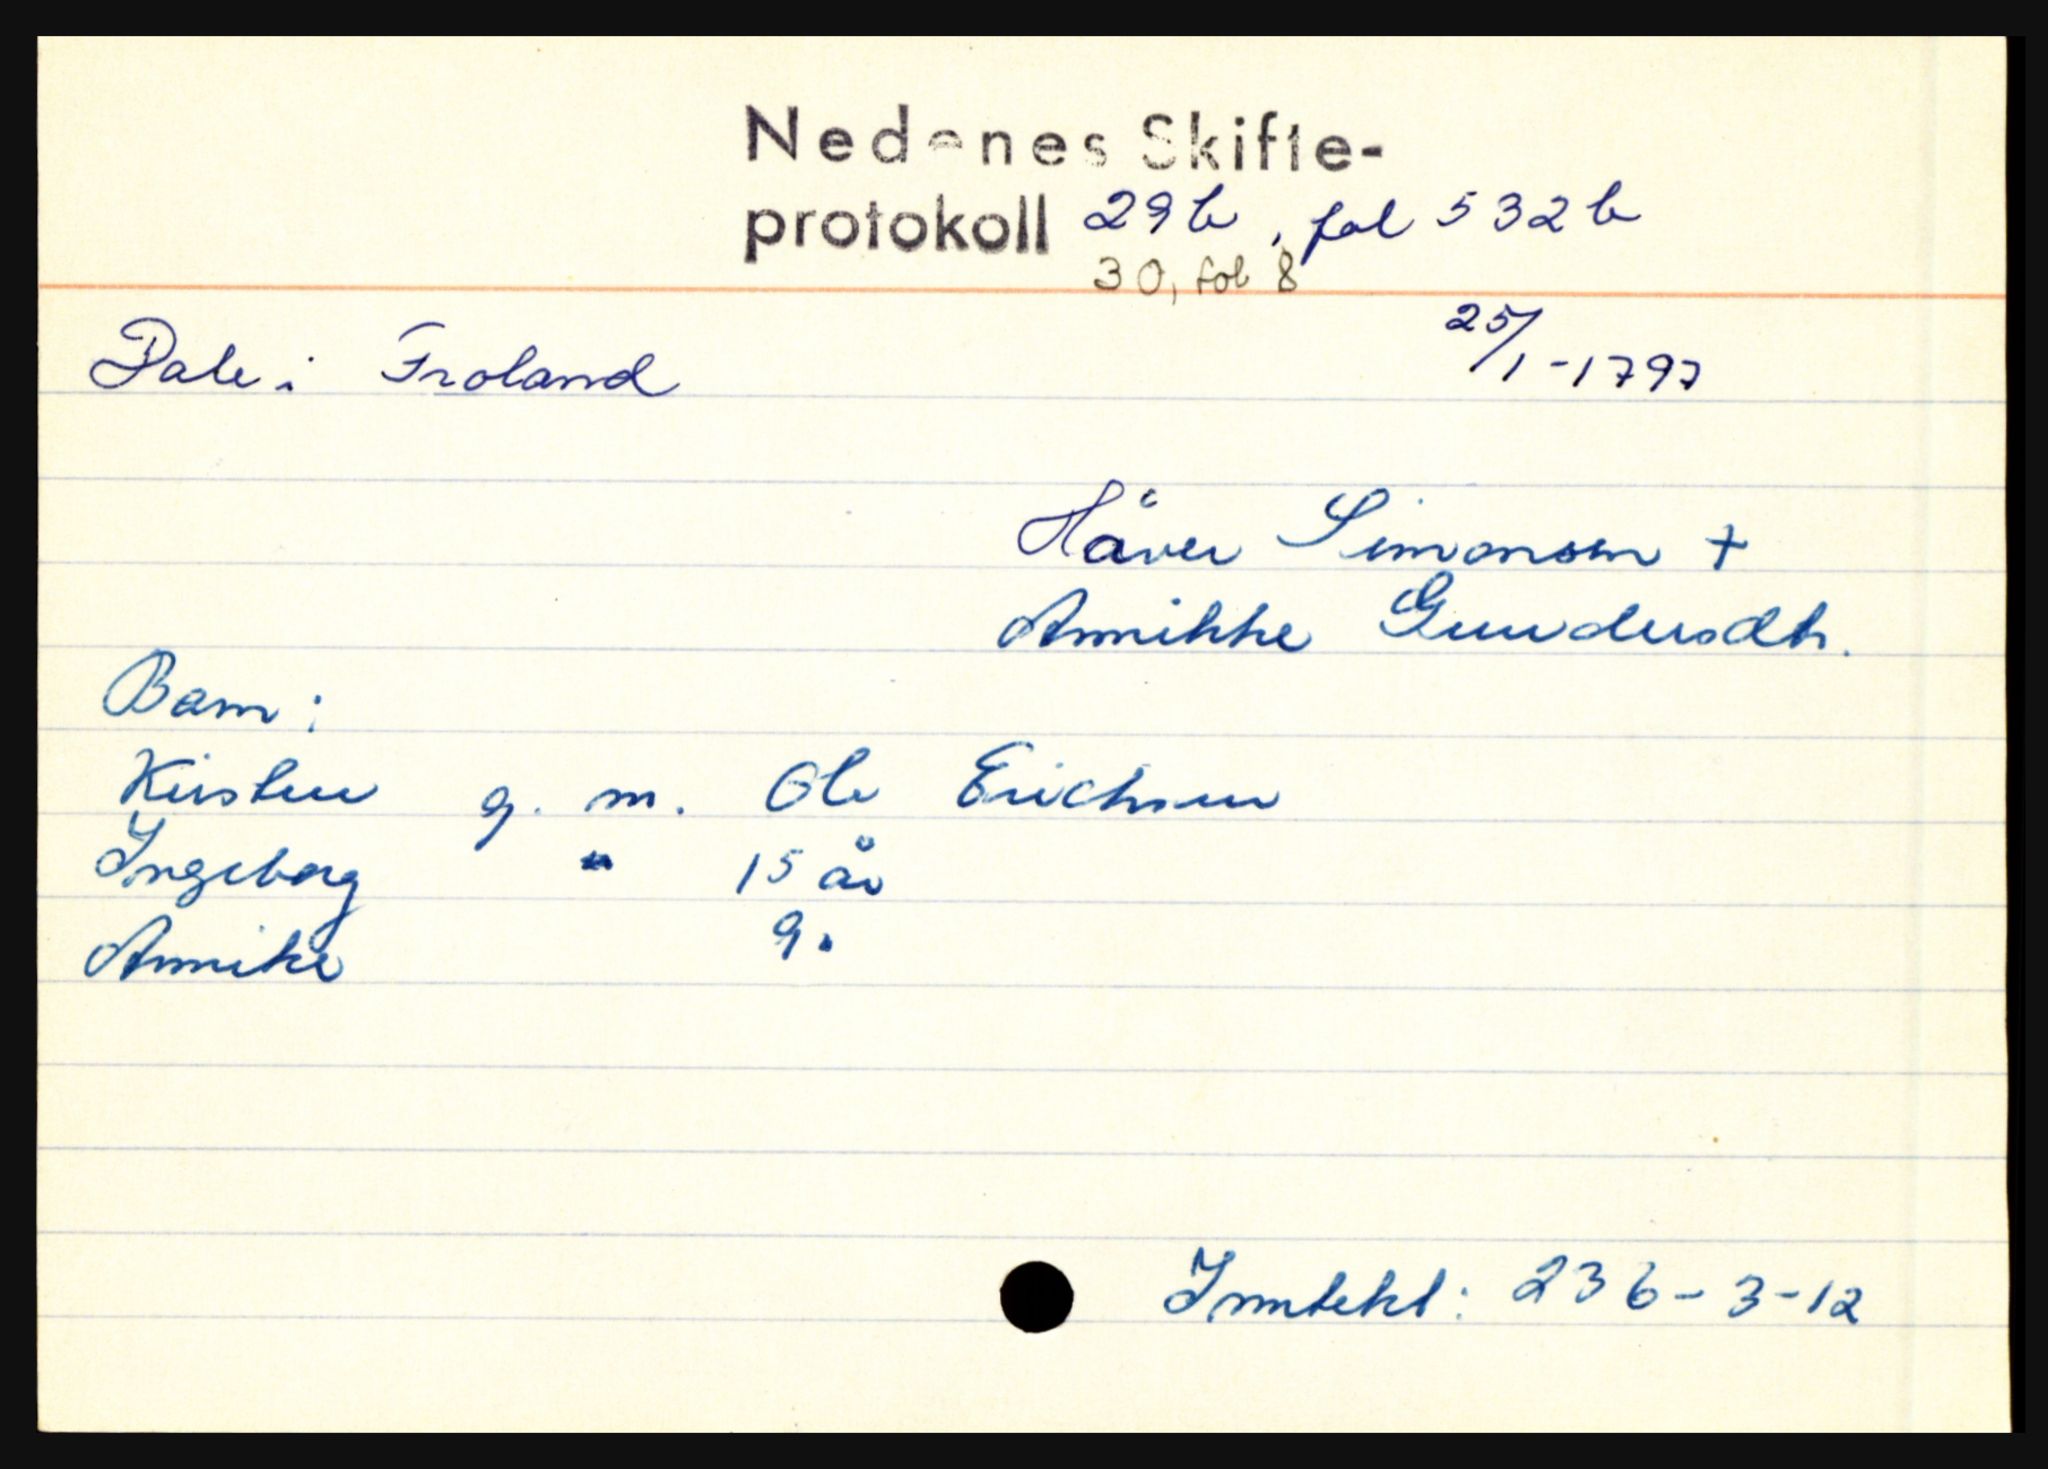 Nedenes Skifte-
protokoll 29 b, fol 532 b
30, fol 8
Dale i Froland 25/1-1797
Håver Simonsen +
Annikke Gundersdtr.
Barn:
Kirsten g. m. Ole Erichsen
Ingeborg " 15 år
Annike 9 "
Inntekt: 236-3-12